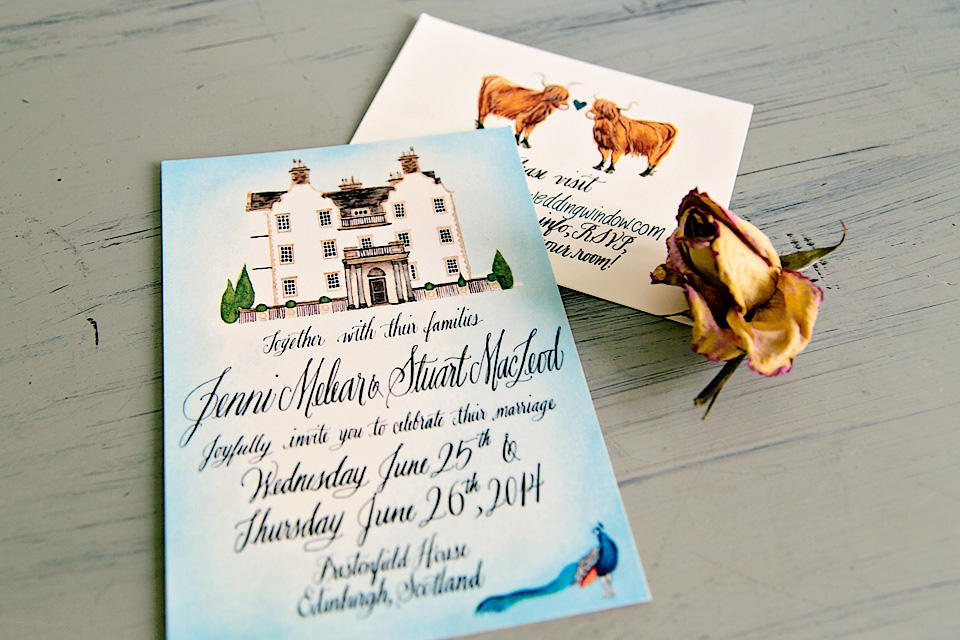 Together with their families
Jenni Melear & Stuart MacLeod
Joyfully invite you to celebrate their marriage
Wednesday June 25th &
Thursday June 26th, 2014
Prestonfield House
Edinburgh, Scotland
visit
weddingwindow.com
info, RSVP,
our room!